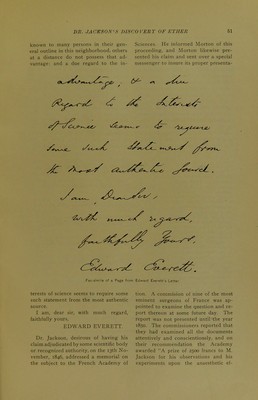 DR. JACKSON'S DISCOVERY OF ETHER 81
known to many persons in their gen-
eral outline in this neighborhood; others
at a distance do not possess that ad-
vantage; and a due regard to the in-
Sciences. He informed Morton of this
proceeding, and Morton likewise pre-
sented his claim and sent over a special
messenger to insure its proper presenta-
advantage; & a due
Regard to the Interests
of Science seems to require
some such Statement from
the most authentic source.
I am, Dear Sir,
with much regard,
faithfully Yours,
Edward Everett.
Facsimile of a Page from Edward Everett's Letter.
terests of science seems to require some
such statement from the most authentic
source.
I am, dear sir, with much regard,
faithfully yours,
EDWARD EVERETT
Dr. Jackson, desirous of having his
claim adjudicated by some scientific body
or recognized authority, on the 13th No-
vember, 1846, addressed a memorial on
the subject to the French Academy of
tion. A commission of nine of the most
eminent surgeons of France was ap-
pointed to examine the question and re-
port thereon at some future day. The
report was not presented until the year
1850. The commissioners reported that
they had examined all the documents
attentively and conscientiously, and on
their recommendation the Academy
awarded "A prize of 2500 francs to M.
Jackson for his observations and his
experiments upon the anaesthetic ef-